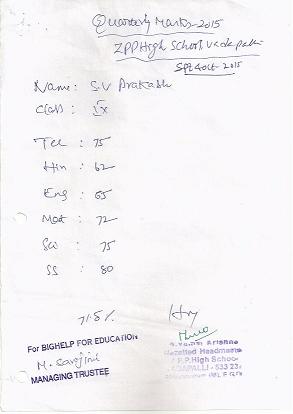 Quarterly Marks-2015
ZPPHigh School, Vadapalli
Spt &oct - 2015
Name : S.V Prakash
Class : IX
Tel : 75
Hin : 62
Eng : 65
Mat : 72
Sci : 75
SS : 80
71.5%
For BIGHELP FOR EDUCATION
M. Sarojini
MANAGING TRUSTEE
Gazetted Headmaster
P.P.High School
VADAPALLI - 533 23